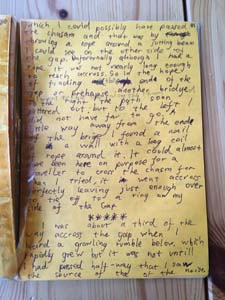 which I could possibly have passed
the chasm and that was by
throwing a rope around a jutting beam
I could see on the other side of
the gap. Unfortunatly although I had a
rope it was not nearly long enough
to reach accross. So in the hope
of finding a
or prehapse another bridge
the right the path
but to the left I
did not have far to
little way away from the end
of the bridge I found a nail
in a wall with a long coil
of rope around it. It could almost
have been here on purpose for a
traveller to cross the chasm for
when I tried it, it went accross
perfectly leaving just enough over
to tie off to a ring on my
side of the Gap.
*****
I was about a third of the
way accross the gap when I
heard a growling rumble below, which
rapidly grew but it was not untill
I had passed half-way that I saw
the source of the noise.